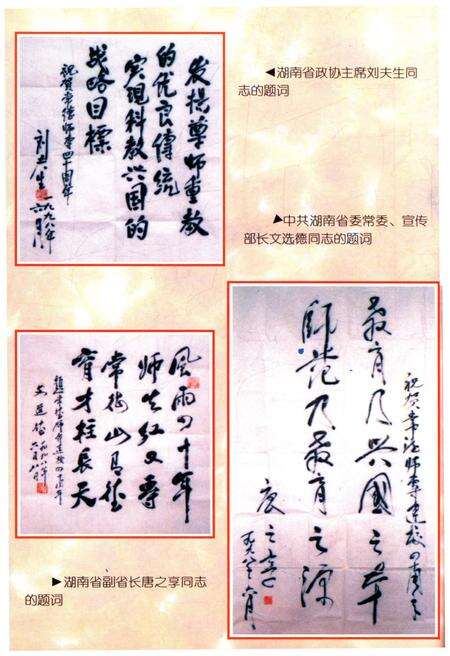 发揚尊师重教
的优良傳统
实现科教兴国的
战略目標
祝賀常德师专四十周年
刘夫生
一九九八年
六月
◀湖南省政协主席刘夫生同
志的题词
▶中共湖南省委常委、宣传
部长文选德同志的题词
風雨四十年
师生红又專
常德山有德
育才柱長天
题常德师专建校四十周年
文选德 一九九八年
六月八日
▶湖南省副省长唐之享同志
的题词
祝贺常德师专建校四十周年
教育乃兴國之本
師范乃教育之源
唐之享